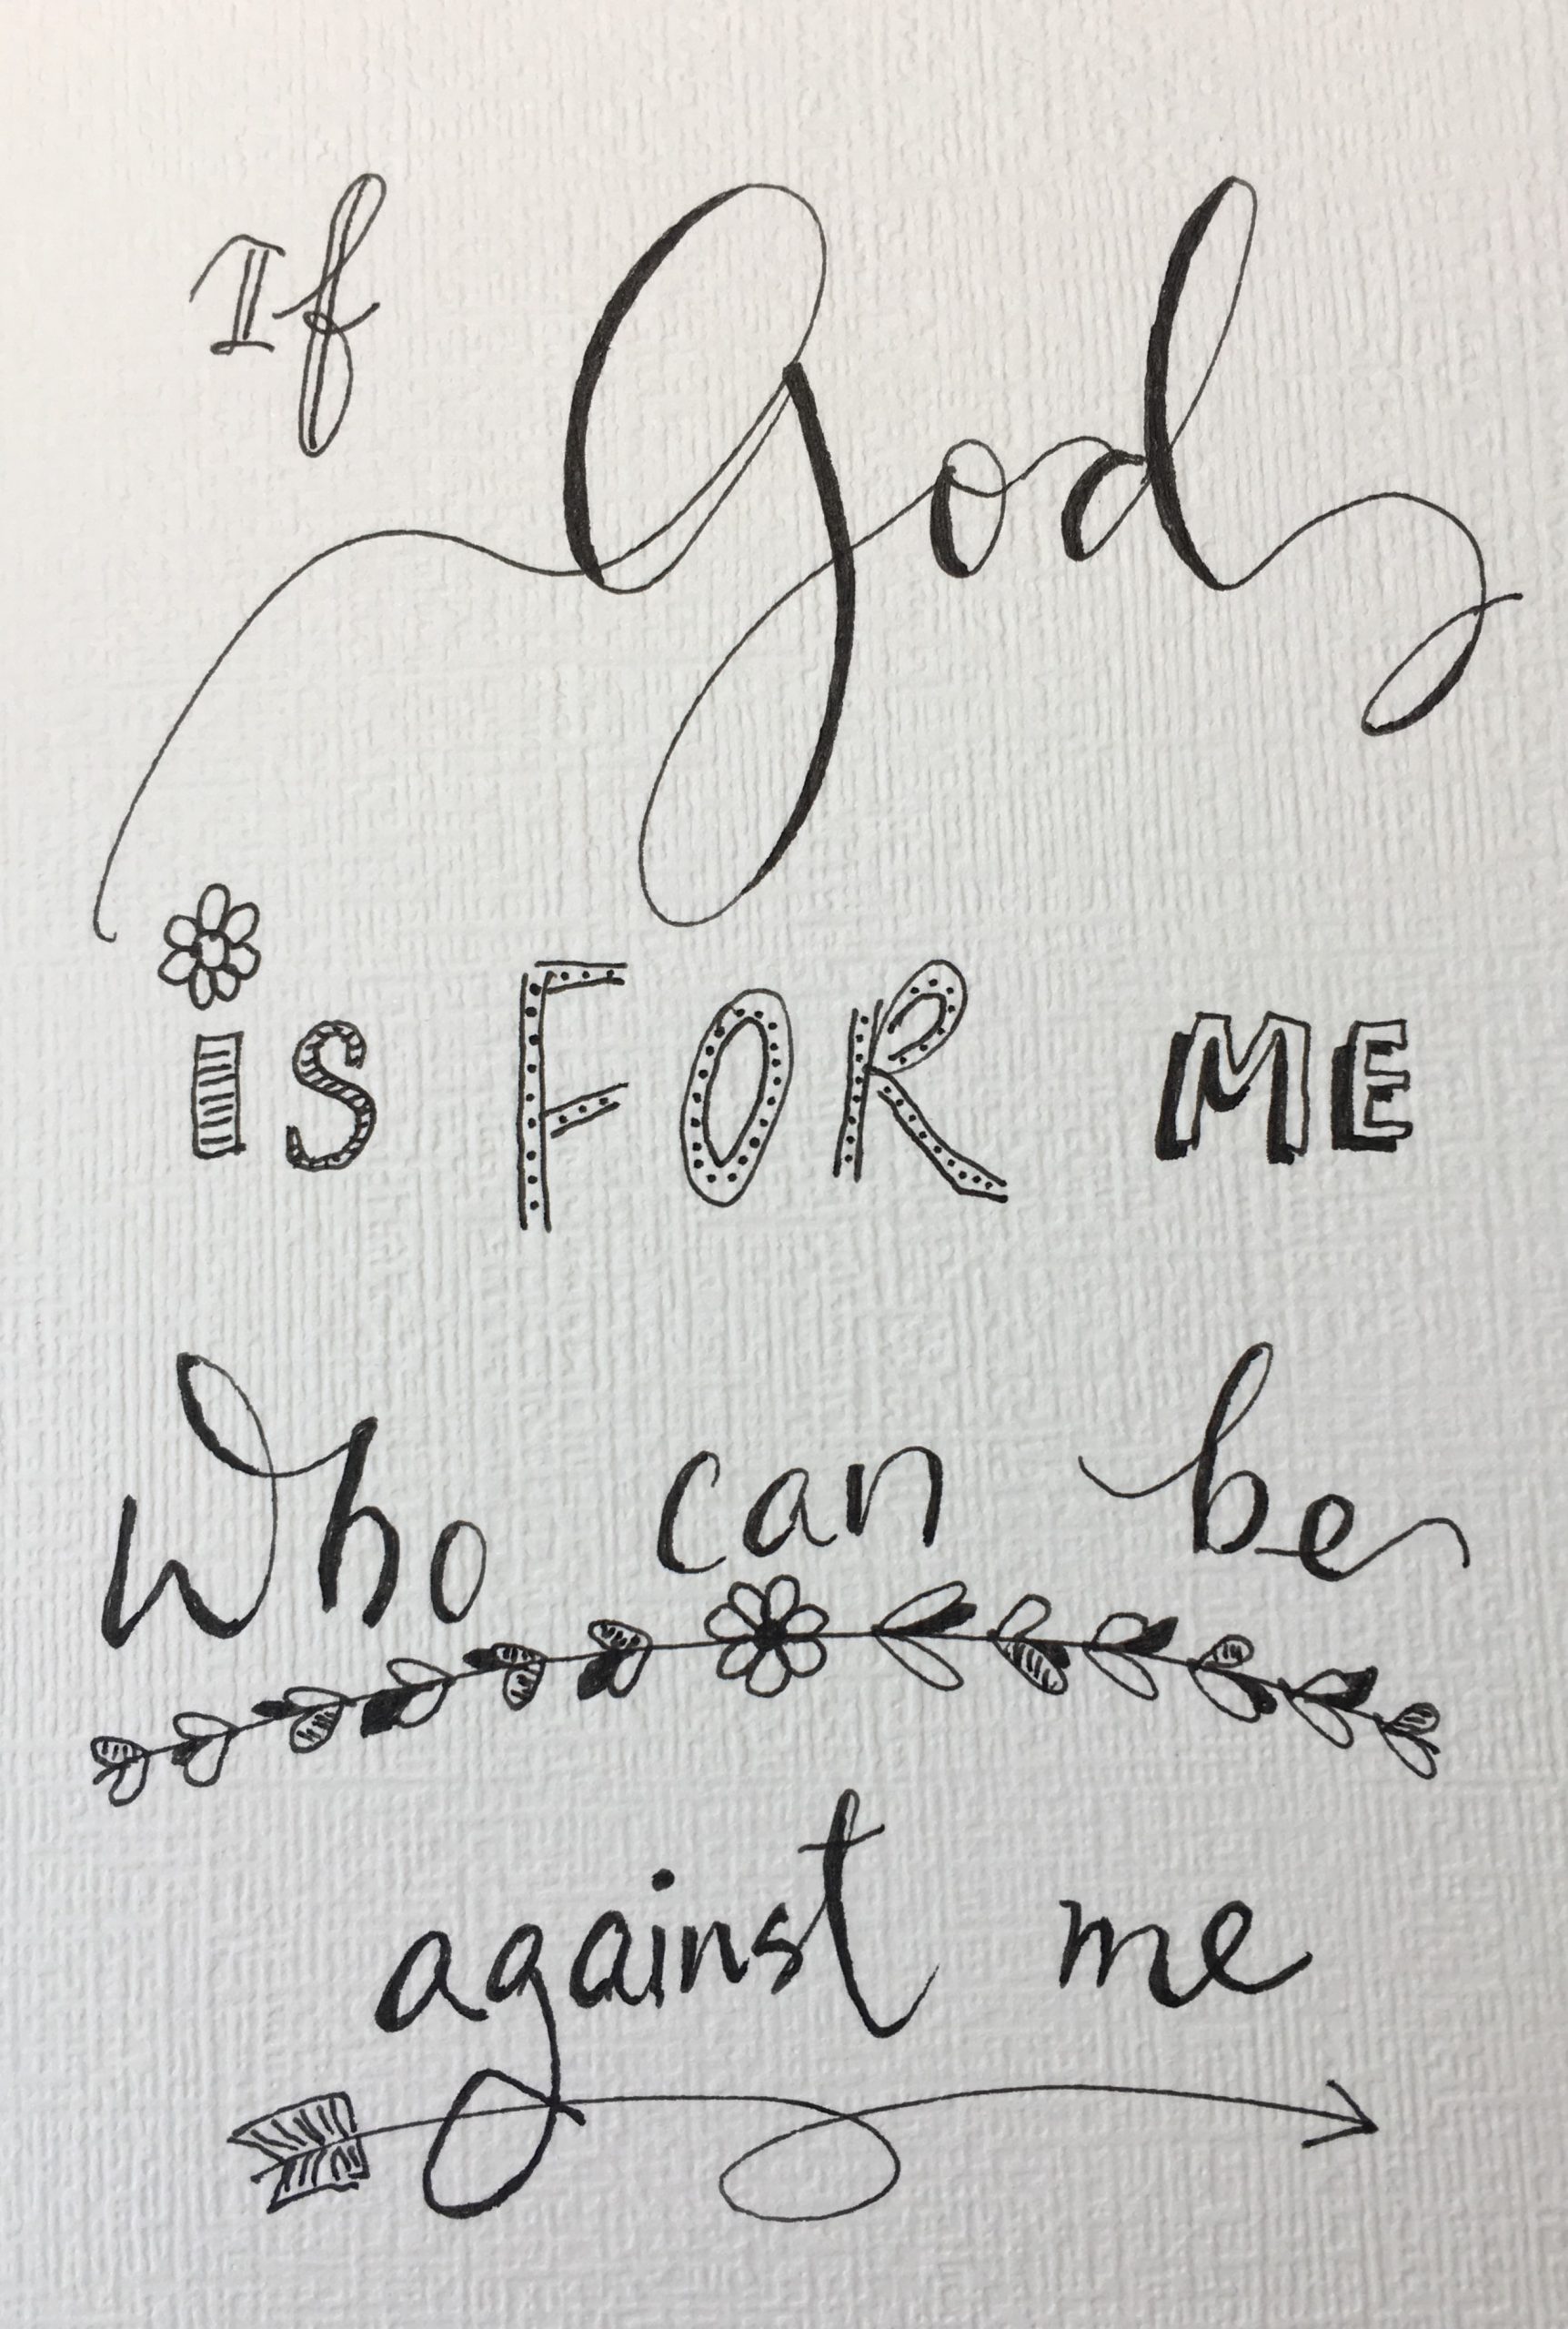 If God
iS FOR ME
Who can be
against me